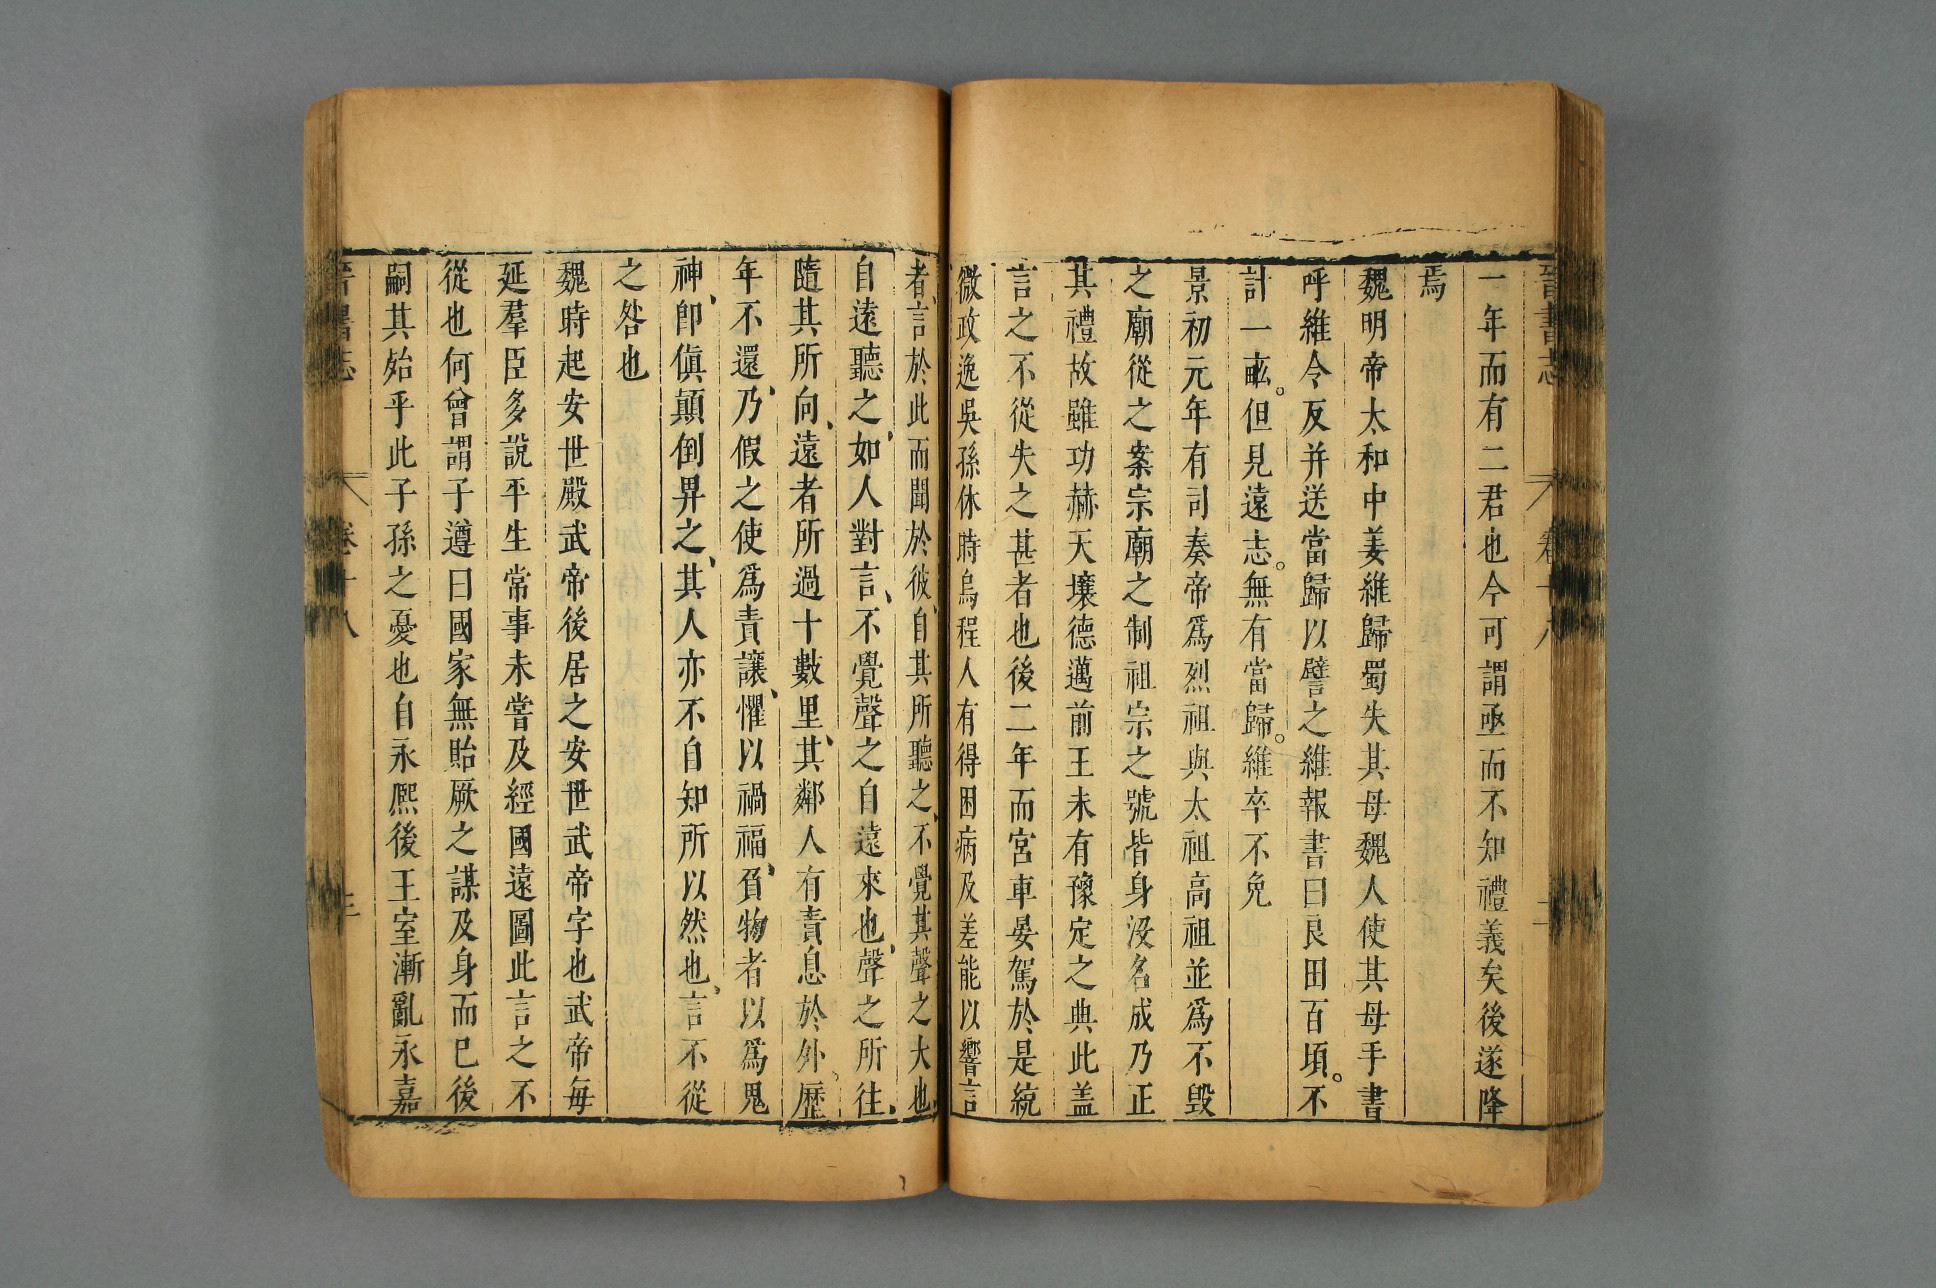 晉書志 卷十八 二
一年而有二君也今可謂亟而不知禮義矣後遂降
焉
魏明帝太和中姜維歸蜀失其母魏人使其母手書
呼維令反并送當歸以譬之維報書曰良田百頃不
計一畝但見遠志無有當歸維卒不免
景初元年有司奏帝爲烈祖與太祖高祖並爲不毀
之廟從之案宗廟之制祖宗之號皆身沒名成乃正
其禮故雖功赫天壤德邁前王未有豫定之典此盖
言之不從失之甚者也後二年而宮車晏駕於是統
微政逸吳孫休時烏程人有得困病及差能以響言
者言於此而聞於彼自其所聽之不覺其聲之大也
自遠聽之如人對言不覺聲之自遠來也聲之所往
隨其所向遠者所過十數里其鄰人有責息於外歷
年不還乃假之使爲責讓懼以禍福負物者以爲鬼
神卽傎顛倒畀之其人亦不自知所以然也言不從
之咎也
魏時起安世殿武帝後居之安世武帝字也武帝每
延羣臣多說平生常事未嘗及經國遠圖此言之不
從也何曾謂子遵曰國家無貽厥之謀及身而已後
嗣其殆乎此子孫之憂也自永熈後王室漸亂永嘉
晉書志 卷十八 三